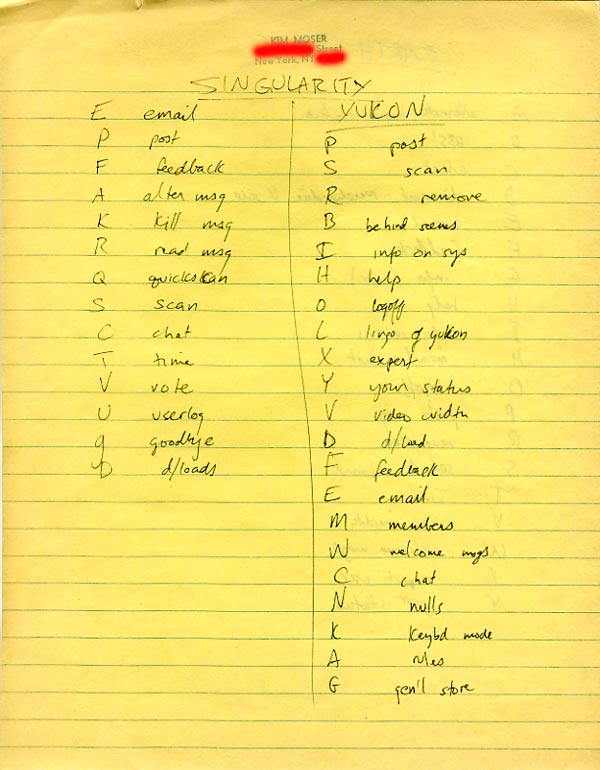 KIM MOSER
Street
New York, NY
SINGULARITY
E email
P post
F feedback
A alter msg
K kill msg
R read msg
Q quickskan
S scan
C chat
T time
V vote
U userlog
g goodbye
D d/loads
YUKON
P post
S scan
R remove
B behind scenes
I info on sys
H help
O logoff
L lingo of yukon
X expert
Y your status
V video width
D d/load
F feedback
E email
M members
W welcome msgs
C chat
N nulls
K Keybd mode
A rules
G gen'l store